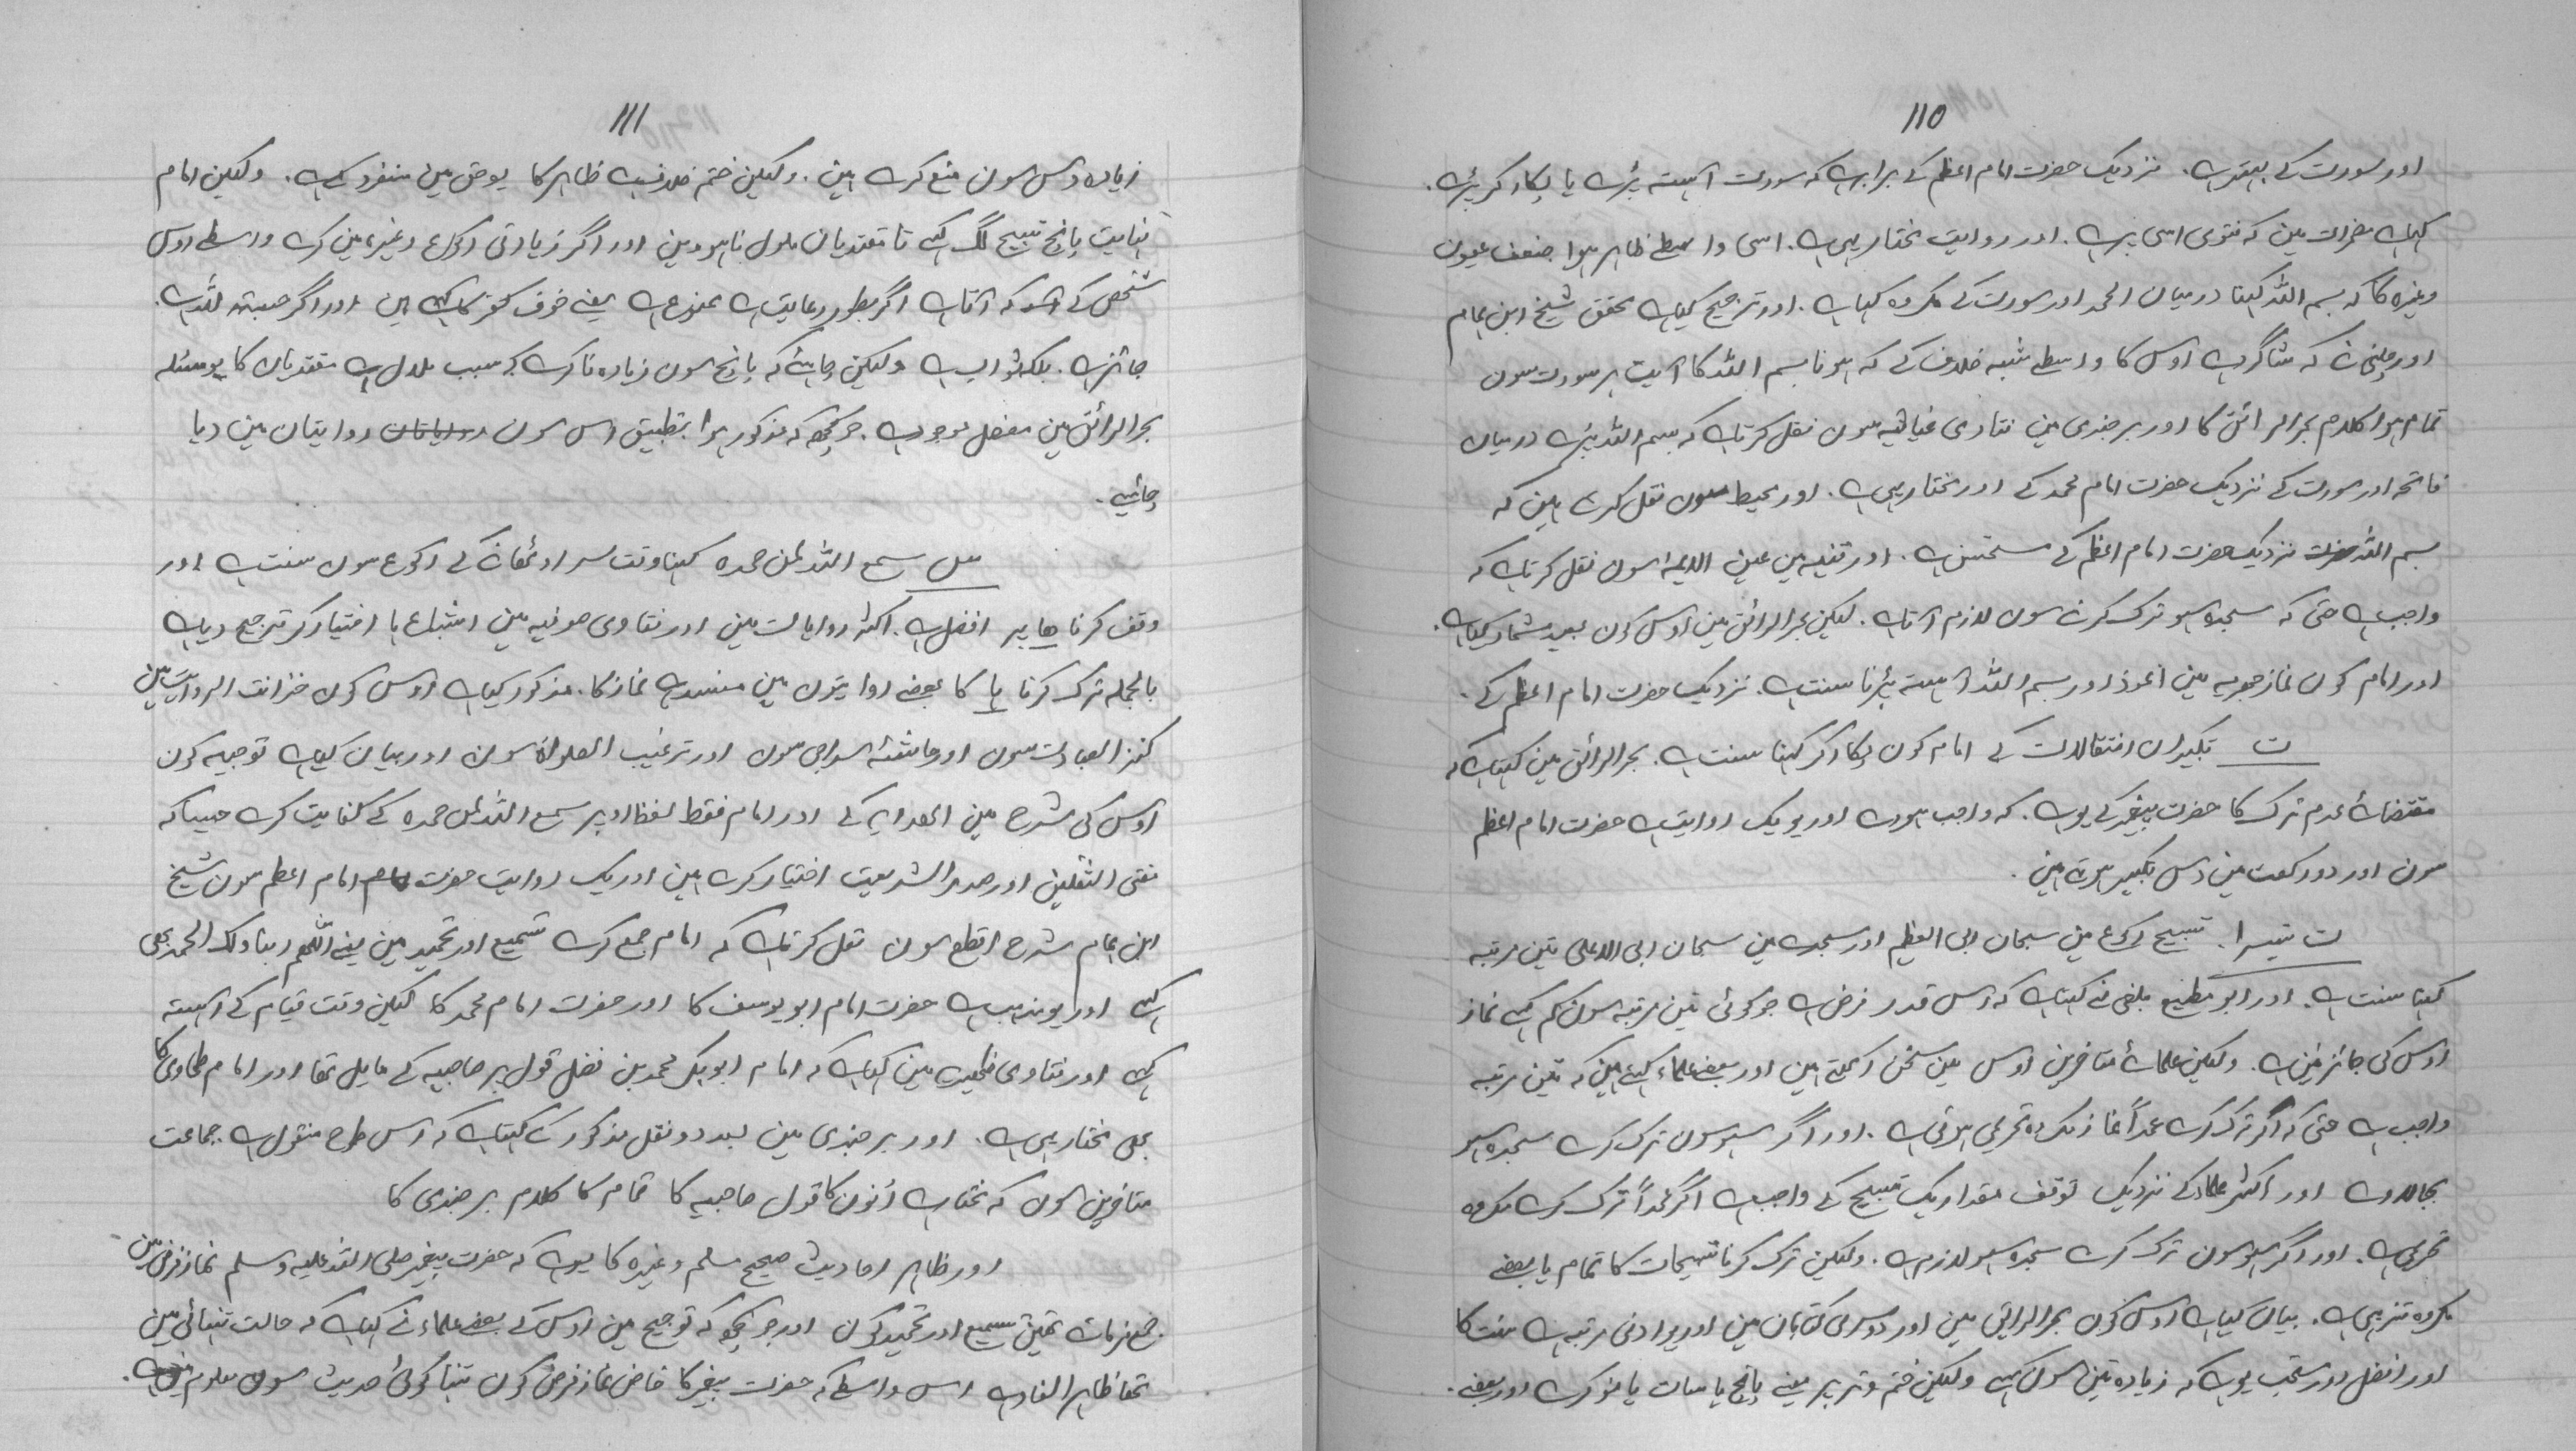 110
اور سورت کے بہتر ہے۔ نزدیک حضرت امام اعظم کے برابر ہے کہ سورت آہستہ پڑے یا پکار کر پڑے۔
کہا ہے مضمرات میں کہ فتوی اسی پر ہے۔ اور روایت مختار یہی ہے۔ اسی واسطے ظاہر ہوا ضعف عیون
وغیرہ کا کہ بسم اللہ کہنا درمیان الحمد اور سورت کے مکروہ کہا ہے۔ اور ترجیح کیا ہے محقق شیخ ابن ہمام
اور چلپی نے کہ شاگرد ہے اوس کا واسطے شبہ خلاف کے کہ ہونا بسم اللہ کا آیت ہر سورت سون
تمام ہوا کلام بحر الرائق کا اور برجندی مین فتاوی غیاثیہ سون نقل کرتا ہے کہ بسم اللہ پڑے درمیان
فاتحہ اور سورت کے نزدیک حضرت امام محمد کے اور مختار یہی ہے۔ اور محیط سون نقل کرتے ہین کہ
بسم اللہ نزدیک حضرت امام اعظم کے مستحسن ہے۔ اور قنیہ مین عین الایمہ سون نقل کرتا ہے کہ
واجب ہے حتی کہ سجدہ سہو ترک کرنے سون لازم آتا ہے۔ لیکن بحر الرائق مین اوس کون بعید شمار کیا ہے۔
اور امام کون نماز جہریہ مین اعوذ اور بسم اللہ آہستہ پڑنا سنت ہے۔ نزدیک حضرت امام اعظم کے۔
ت تکبیران انتقالات کے امام کون پکار کر کہنا سنت ہے۔ بحر الرائق مین کہتا ہے کہ
مقتضائے عدم ترک کا حضرت پیغمبر کے یو ہے۔ کہ واجب ہووے اور یو یک روایت ہے حضرت امام اعظم
سون اور دو رکعت مین دس تکبیر ہوتے ہین۔
ت تیسرا۔ تسبیح رکوع مین سبحان ربی العظیم اور سجدے مین سبحان ربی الاعلی تین مرتبہ
کہنا سنت ہے۔ اور ابو مطیع بلخی نے کہتا ہے کہ اس قدر فرض ہے جو کوئی تین مرتبہ سون کم کہے نماز
اوس کی جائز نہین ہے۔ ولیکن علمائے متاخرین اوس مین سخن رکھتے ہین اور بعضے علماء کہتے ہین کہ تین مرتبہ
واجب ہے حتی کہ اگر ترک کرے عمداً نماز مکروہ تحریمی ہوتی ہے۔ اور اگر سہو سون ترک کرے سجدہ سہو
بجا لاوے اور اکثر علماء کے نزدیک توقف مقدار یک تسبیح کے واجب ہے اگر عمداً ترک کرے مکروہ
تحریمی ہے۔ اور اگر سہو سون ترک کرے سجدہ سہو لازم ہے۔ ولیکن ترک کرنا تسبیحات کا تمام یا بعضے
مکروہ تنزیہی ہے۔ بیان کیا ہے اوس کون بحر الرائق مین اور دوسری کتابان مین اور یو ادنی مرتبہ ہے سنت کا
اور افضل اور مستحب یو ہے کہ زیادہ تین سون کہے ولیکن ختم وتر پر یعنے پانچ یا سات یا نو کرے اور بعضے۔
111
زیادہ دس سون منع کرے ہین۔ ولیکن ختم خلاف ہے ظاہر کا یو حق مین منفرد کے ہے۔ ولیکن امام
نہایت پانچ تسبیح لگ کہے تا مقتدیان ملول نا ہووین اور اگر زیادتی رکوع وغیرہ مین کرے واسطے اوس
شخص کے کہ آتا ہے اگر بطور رعایت ہے ممنوع ہے یعنے خوف کفر کا ہے این اور اگر حسبتہ للہ ہے۔
جائز ہے۔ بلکہ ثواب ہے ولیکن چاہئے کہ پانچ سون زیادہ نا کرے کہ سبب ملال ہے مقتدیان کا یو مسئلہ
بحر الرائق مین مفصل موجود ہے۔ جو کچھ کہ مذکور ہوا بتطبیق اس سون روایتان مین دیا
چاہئیے۔
سل سمع اللہ لمن حمدہ کہنا وقت سر اوٹھانے کے رکوع سون سنت ہے اور
وقف کرنا ھا پر افضل ہے۔ اکثر روایات مین اور فتاوی صوفیہ مین اشباع ہا اختیار کر ترجیح دیا ہے
بالجملہ ترک کرنا ہا کا بعضے روایتون مین مفسد ہے نماز کا۔ مذکور کیا ہے اوس کون خزانت الروایت مین
کنز العبادت سون اور حاشئہ سراجی سون اور ترغیب الصلواۃ سون اور بیان کیا ہے توجیہ کون
اوس کی شرح مین الھدایہ کے اور امام فقط لفظ اوپر سمع اللہ لمن حمدہ کے کفایت کرے جیسا کہ
مفتی الثقلین اور صدر الشریعت اختیار کرے ہین اور یک روایت حضرت امام اعظم سون شیخ
ابن ہمام شرح اقطع سون نقل کرتا ہے کہ امام جمع کرے تسمیع اور تحمید مین یعنے اللھم ربنا ولک الحمد بھی
کہے اور یو مذہب ہے حضرت امام ابو یوسف کا اور حضرت امام محمد کا لیکن وقت قیام کے آہستہ
کہے اور فتاوی ظہیریہ مین کہا ہے کہ امام ابو بکر محمد بن فضل قول پر صاحبیہ کے مایل تھا اور امام طحاوی کا
بھی مختار یہی ہے۔ اور برجندی مین بعد دو نقل مذکور کے کہتا ہے کہ اس طرح منقول ہے جماعت
متاخرین سون کہ مختار ہے اُنون کا قول صاحبیہ کا تمام کا کلام برجندی کا
اور ظاہر احادیث صحیح مسلم وغیرہ کا یو ہے کہ حضرت پیغمبر صلی اللہ علیہ وسلم نماز فرض مین
جمع فرمائے تھین تسمیع اور تحمید کون اور جو کچھ کہ توجیح مین اوس کے بعضے علماء نے کہا ہے کہ حالت تنہائی مین
تھا ظاہر الفاد ہے اس واسطے کہ حضرت پیغمبر کا خاص نماز فرض کون تنہا کوئی حدیث سون معلوم نہین ہے۔